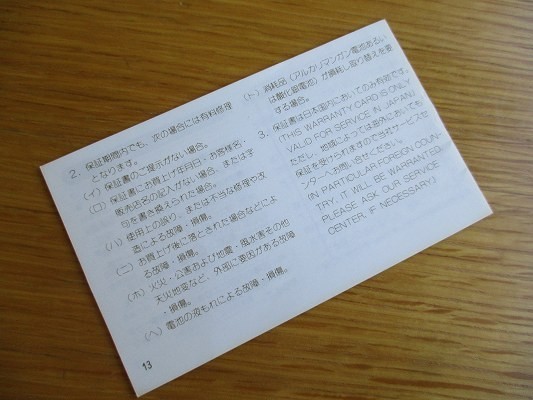 2. 保証期間内でも、次の場合には有料修理
となります。
(イ) 保証書のご提示がない場合。
(ロ) 保証書にお買上げ年月日・お客様名・
販売店名の記入がない場合、または字
句を書き換えられた場合。
(ハ) 使用上の誤り、または不当な修理や改
造による故障・損傷。
(ニ) お買上げ後に落とされた場合などによ
る故障・損傷。
(ホ) 火災・公害および地震・風水害その他
天災地変など、外部に要因がある故障
・損傷。
(ヘ) 電池の液もれによる故障・損傷。
13
(ト) 消耗品(アルカリマンガン電池あるい
は酸化銀電池)が損耗し取り替えを要
する場合。
3. 保証書は日本国内においてのみ有効です。
(THIS WARRANTY CARD IS ONLY
VALID FOR SERVICE IN JAPAN)
ただし、地域によっては海外においても
保証を受けられますので当社サービスセ
ンターへお問い合せください。
(IN PARTICULAR FOREIGN COUN-
TRY, IT WILL BE WARRANTED.
PLEASE ASK OUR SERVICE
CENTER, IF NECESSARY.)